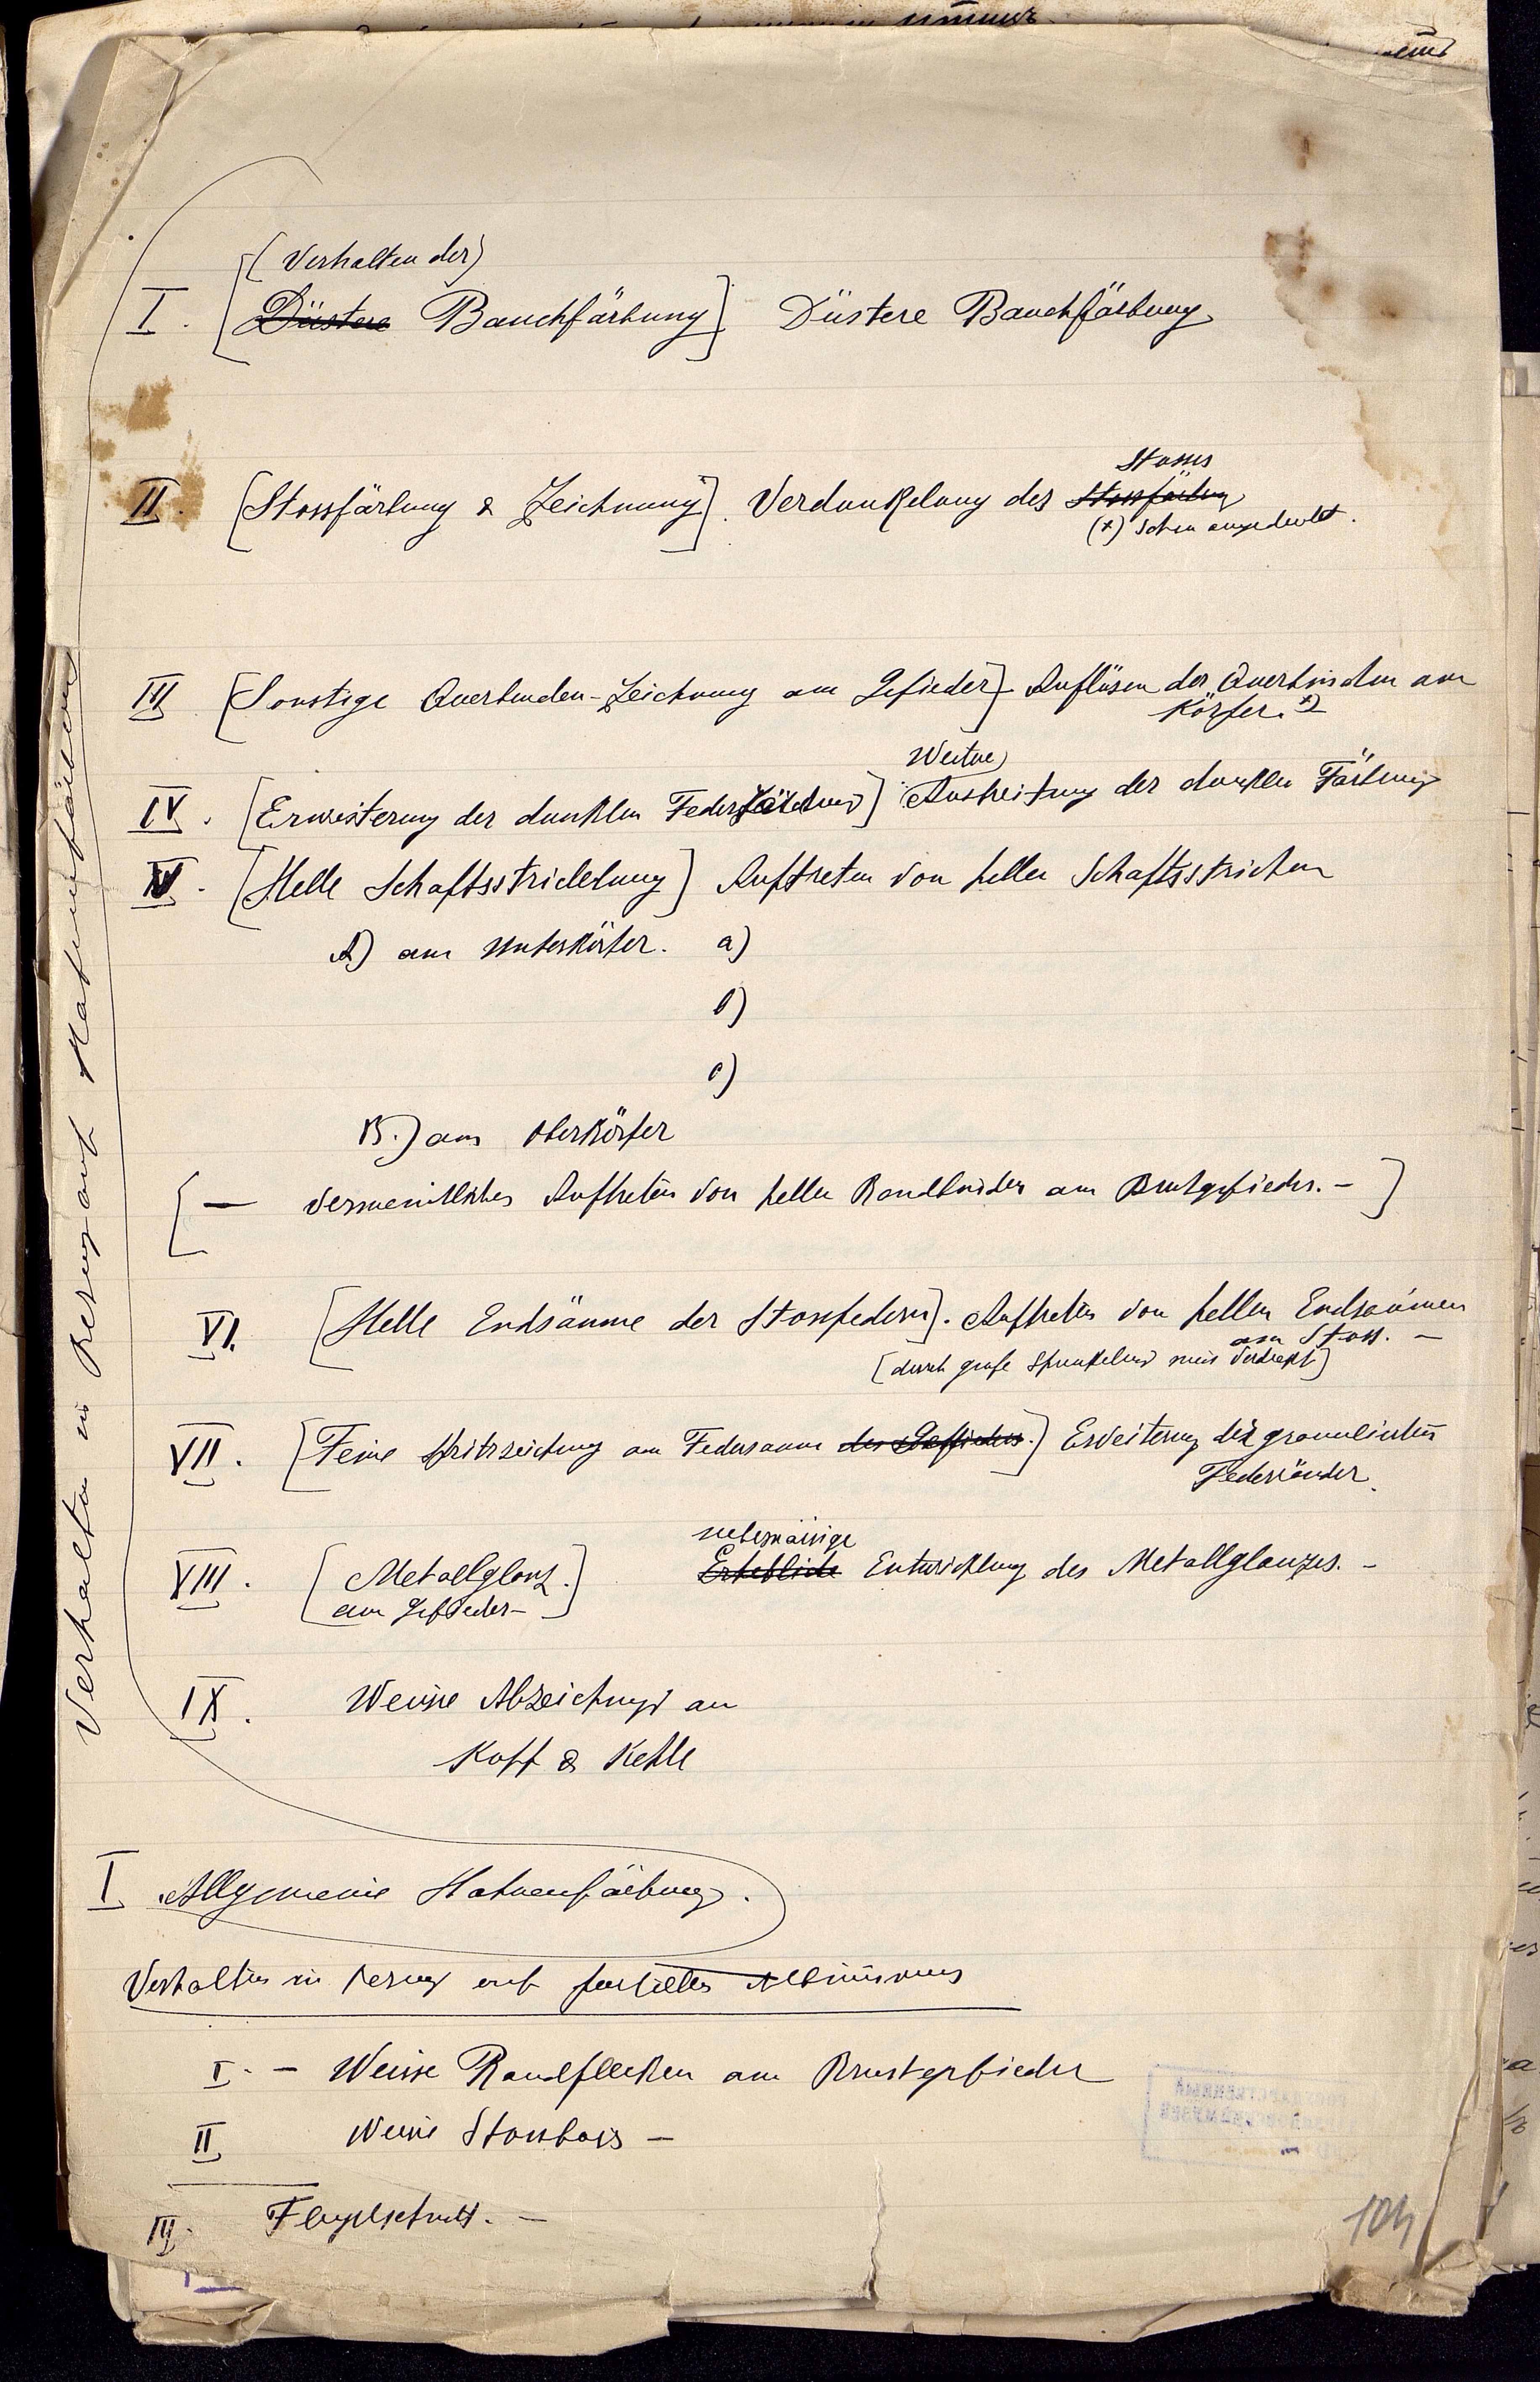 (Verhalten der)
I. [Düstere Bauchfärbung] Düstere Bauchfärbung
Stosses
II. [Stossfärbung & Zeichnung]. Verdunkelung des Stossfärbung
(+) schon angedeutet.
III. [Sonstige Querbinden-Zeichnung am Gefieder] Auflösen der Querbinden am
Körper.
Weitere
IV. [Erweiterung der dunklen Federfärbung] Ausbreitung der dunklen Färbung
V. [Helle Schaftsstrichelung] Auftreten von hellen Schaftsstrichen
A) am Unterkörper. a)
b)
c)
B.) am Oberkörper
[— Vermeintliches Auftreten von hellen Randbinden am Brustgefieder. —]
VI. [Helle Endsäume der Stossfedern]. Auftreten von hellen Endsäumen
am Stoss. —
[durch grobe Sprenkelung meist verdeckt]
VII. [Feine Spritzzeichnung am Federsaum des Gefieders.] Erweiterung der granulierten
Federränder.
VIII. [Metallglanz.] Erhebliche Entwicklung des Metallglanzes. —
am Gefieder —
IX. Weisse Abzeichnung an
Kopf & Kehle
Verhalten in Bezug auf Hahnenfärbung
I Allgemeine Hahnenfärbung.
Verhalten in Bezug auf partiellen Albinismus
I. — Weisse Randflecken am Brustgefieder
II Weisse Stossbasis —
III. Flügelschnitt. —
104